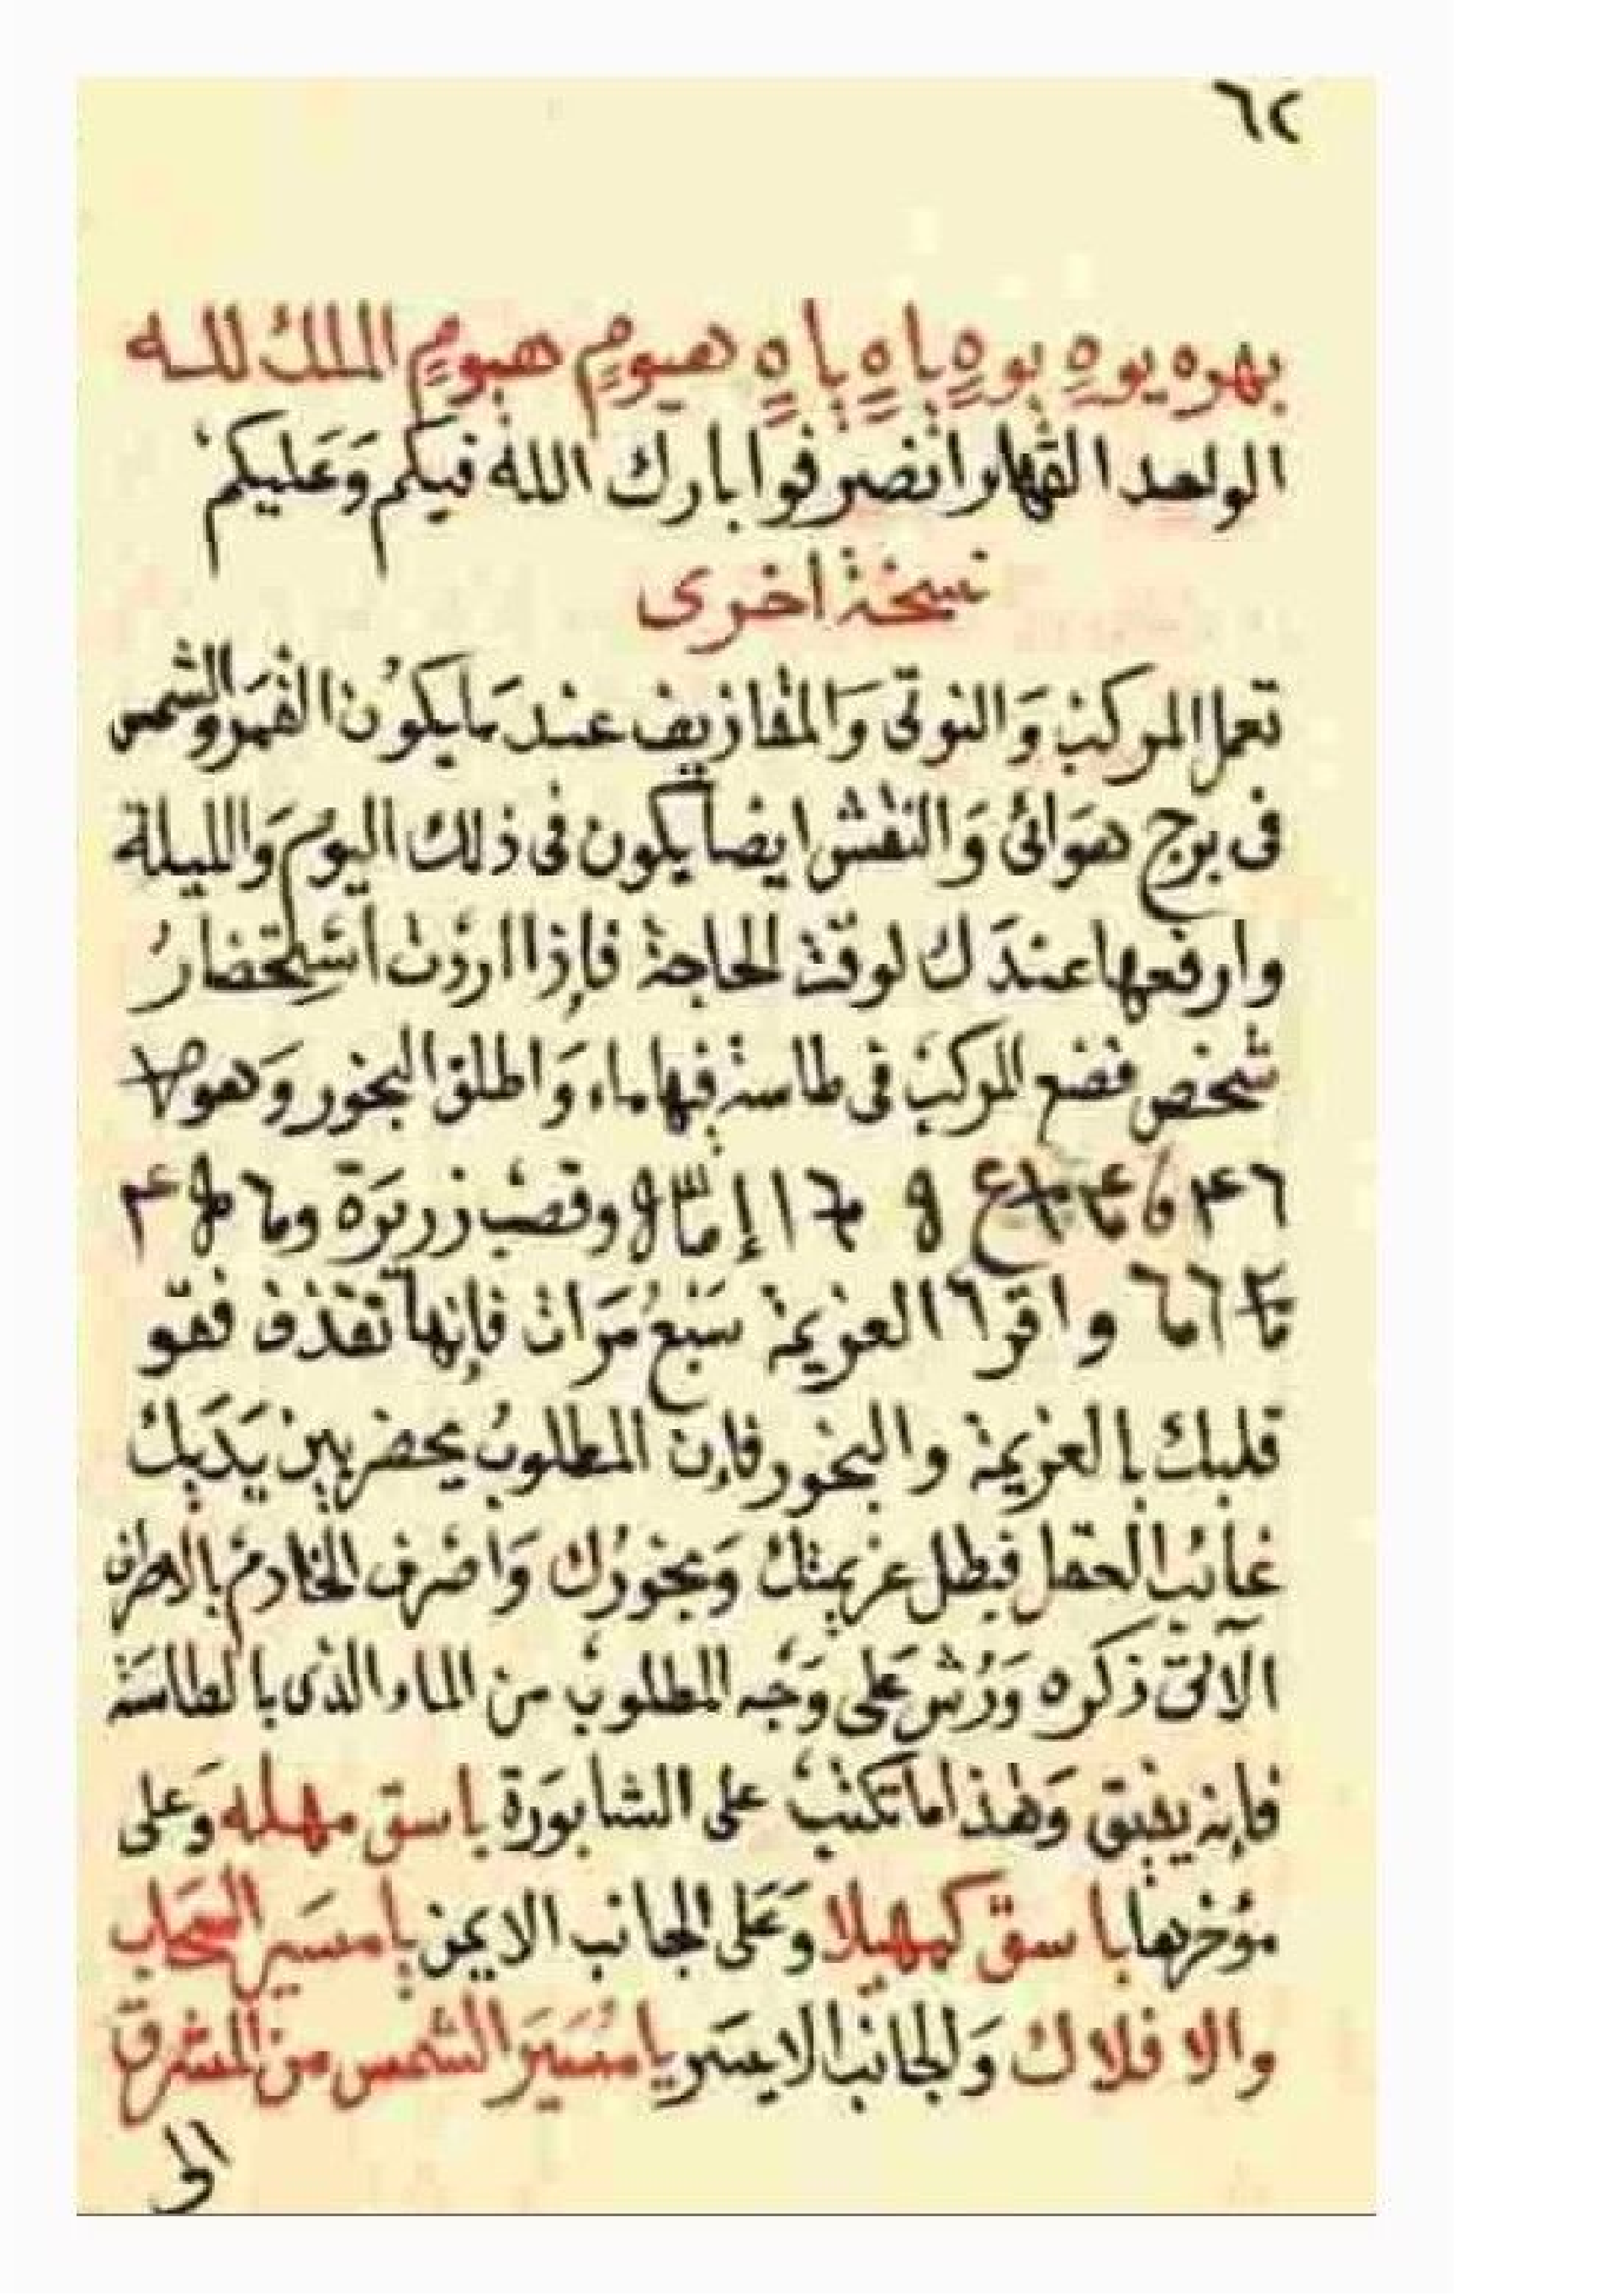 ٦٢
بهره يوهٍ يوهٍ ياهٍ ياهٍ هيومٍ هيومٍ الملك لله
الواحد القهار انصرفوا بارك الله فيكم وَعَليكم
نسخة اخرى
تعمل المركب وَالنوتى وَالمقازيف عند مَا يكوُن القمر والشمس
فى برج هوَائى وَالنقش ايضا يكون فى ذلك اليوم وَالليلة
وارفعها عندَك لوقت الحاجة فإذا اردت اسْتِحضارُ
شخص فضع المركب فى طاسة فيها ماء وَاطلق البخور وَهو
وقصب زريرَة
واقرا العزيمة سَبع مَرات فإنها تقذف فقو
قلبك بالعزيمة والبخور فإن المطلوبُ يحضر بين يَدَيك
غائب العقل فبطل عزيمتك وَبخورُك وَاصْرف الخادم
الآتى ذكره وَرُش عَلى وَجْه المطلوب من الماء الذى بالطاسَة
فإنه يفيق وَهذا ما تكتب على الشابورَة باسق مهله وَعلى
مؤخرها باسق كمهيلا وَعَلى الجانب الايمن يا مسَير السَحاب
والافلاك وَالجانب الايسَر يا مُسَيرَ الشمس من المشرق
الى